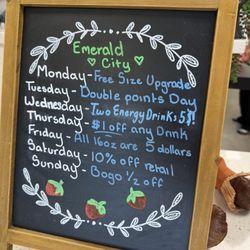 Emerald
City
Monday - Free Size Upgrade
Tuesday - Double points Day
Wednesday - Two Energy Drinks 5$!
Thursday - $1 off any Drink
Friday - All 16oz are 5 dollars
Saturday - 10% off retail
Sunday - Bogo 1/2 off